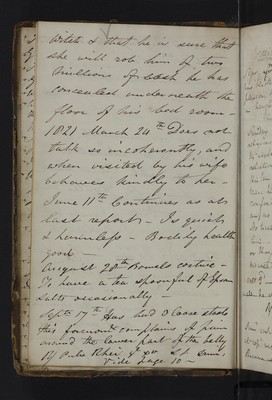 Witch & that he is sure that
she will rob him of two
millions of cash he has
concealed underneath the
floor of his bed room -
1821 March 24th Does not
talk so incoherently, and
when visited by his wife
behaves kindly to her -
June 11th Continues as at
last report - Is quiet
& harmless - Bodily health
good -
August 20th Bowels costive -
To have a tea spoonful of Epsom
Salts occasionally -
Septr 17th Has had 3 loose stools
this forenoon complains of pain
around the lower part of the belly
Pulv Rhei gr xv
Vide page 10 -